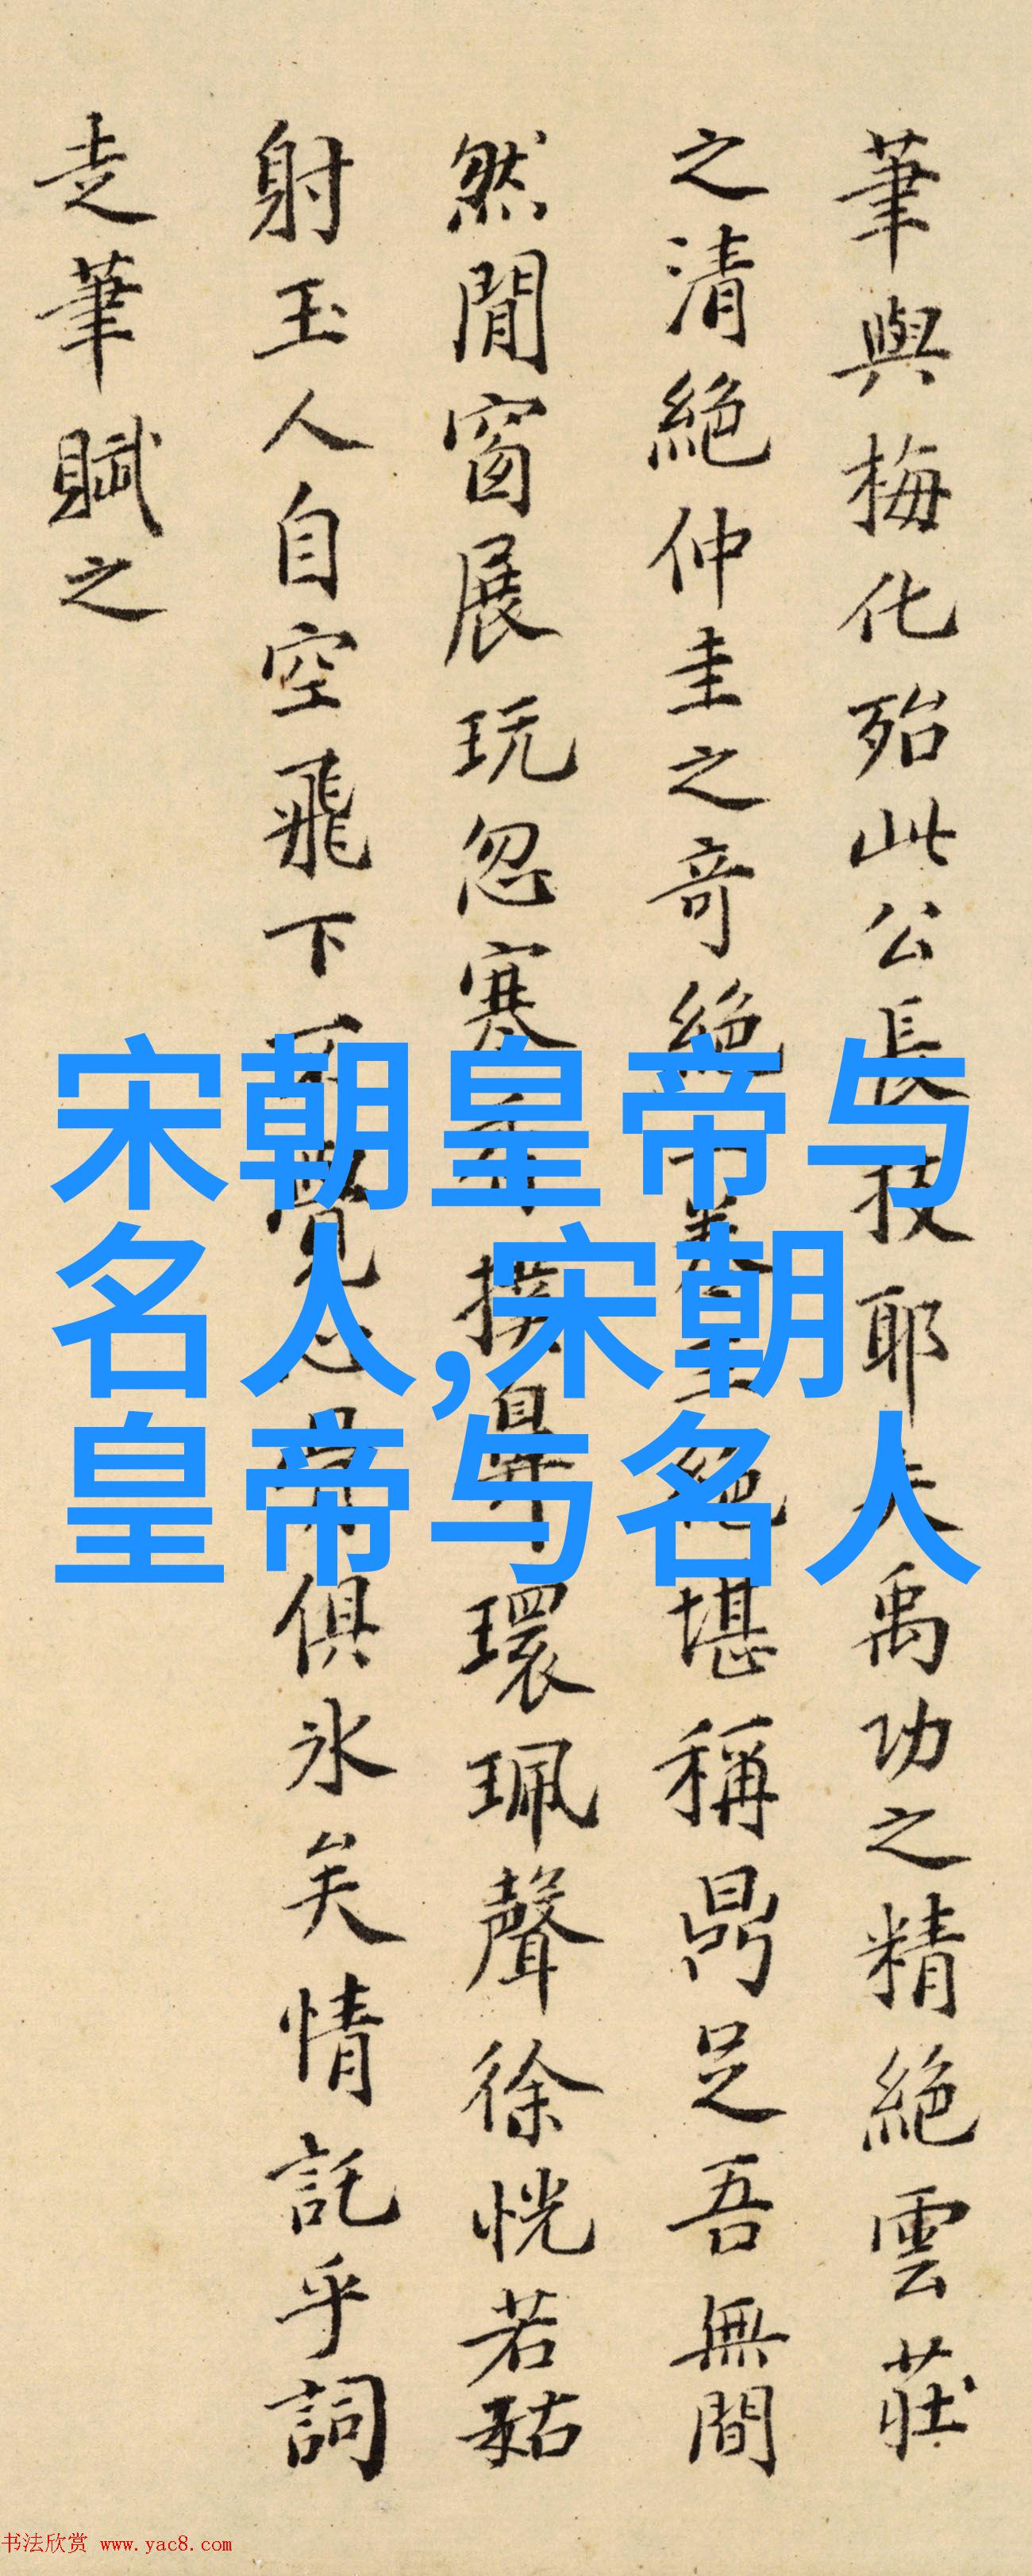 筆與梅化殆此公長技耶夫禹功之精絕雲莊
之清絕仲圭之奇絕堪稱鼎足吾無間
然閒窗展玩忽寒環珮聲徐恍若
射玉人自空飛下俱冰矣情託乎詞
走筆賦之
宋朝皇帝与
名人,宋朝
皇帝与名人
书法欣赏 www.yac8.com